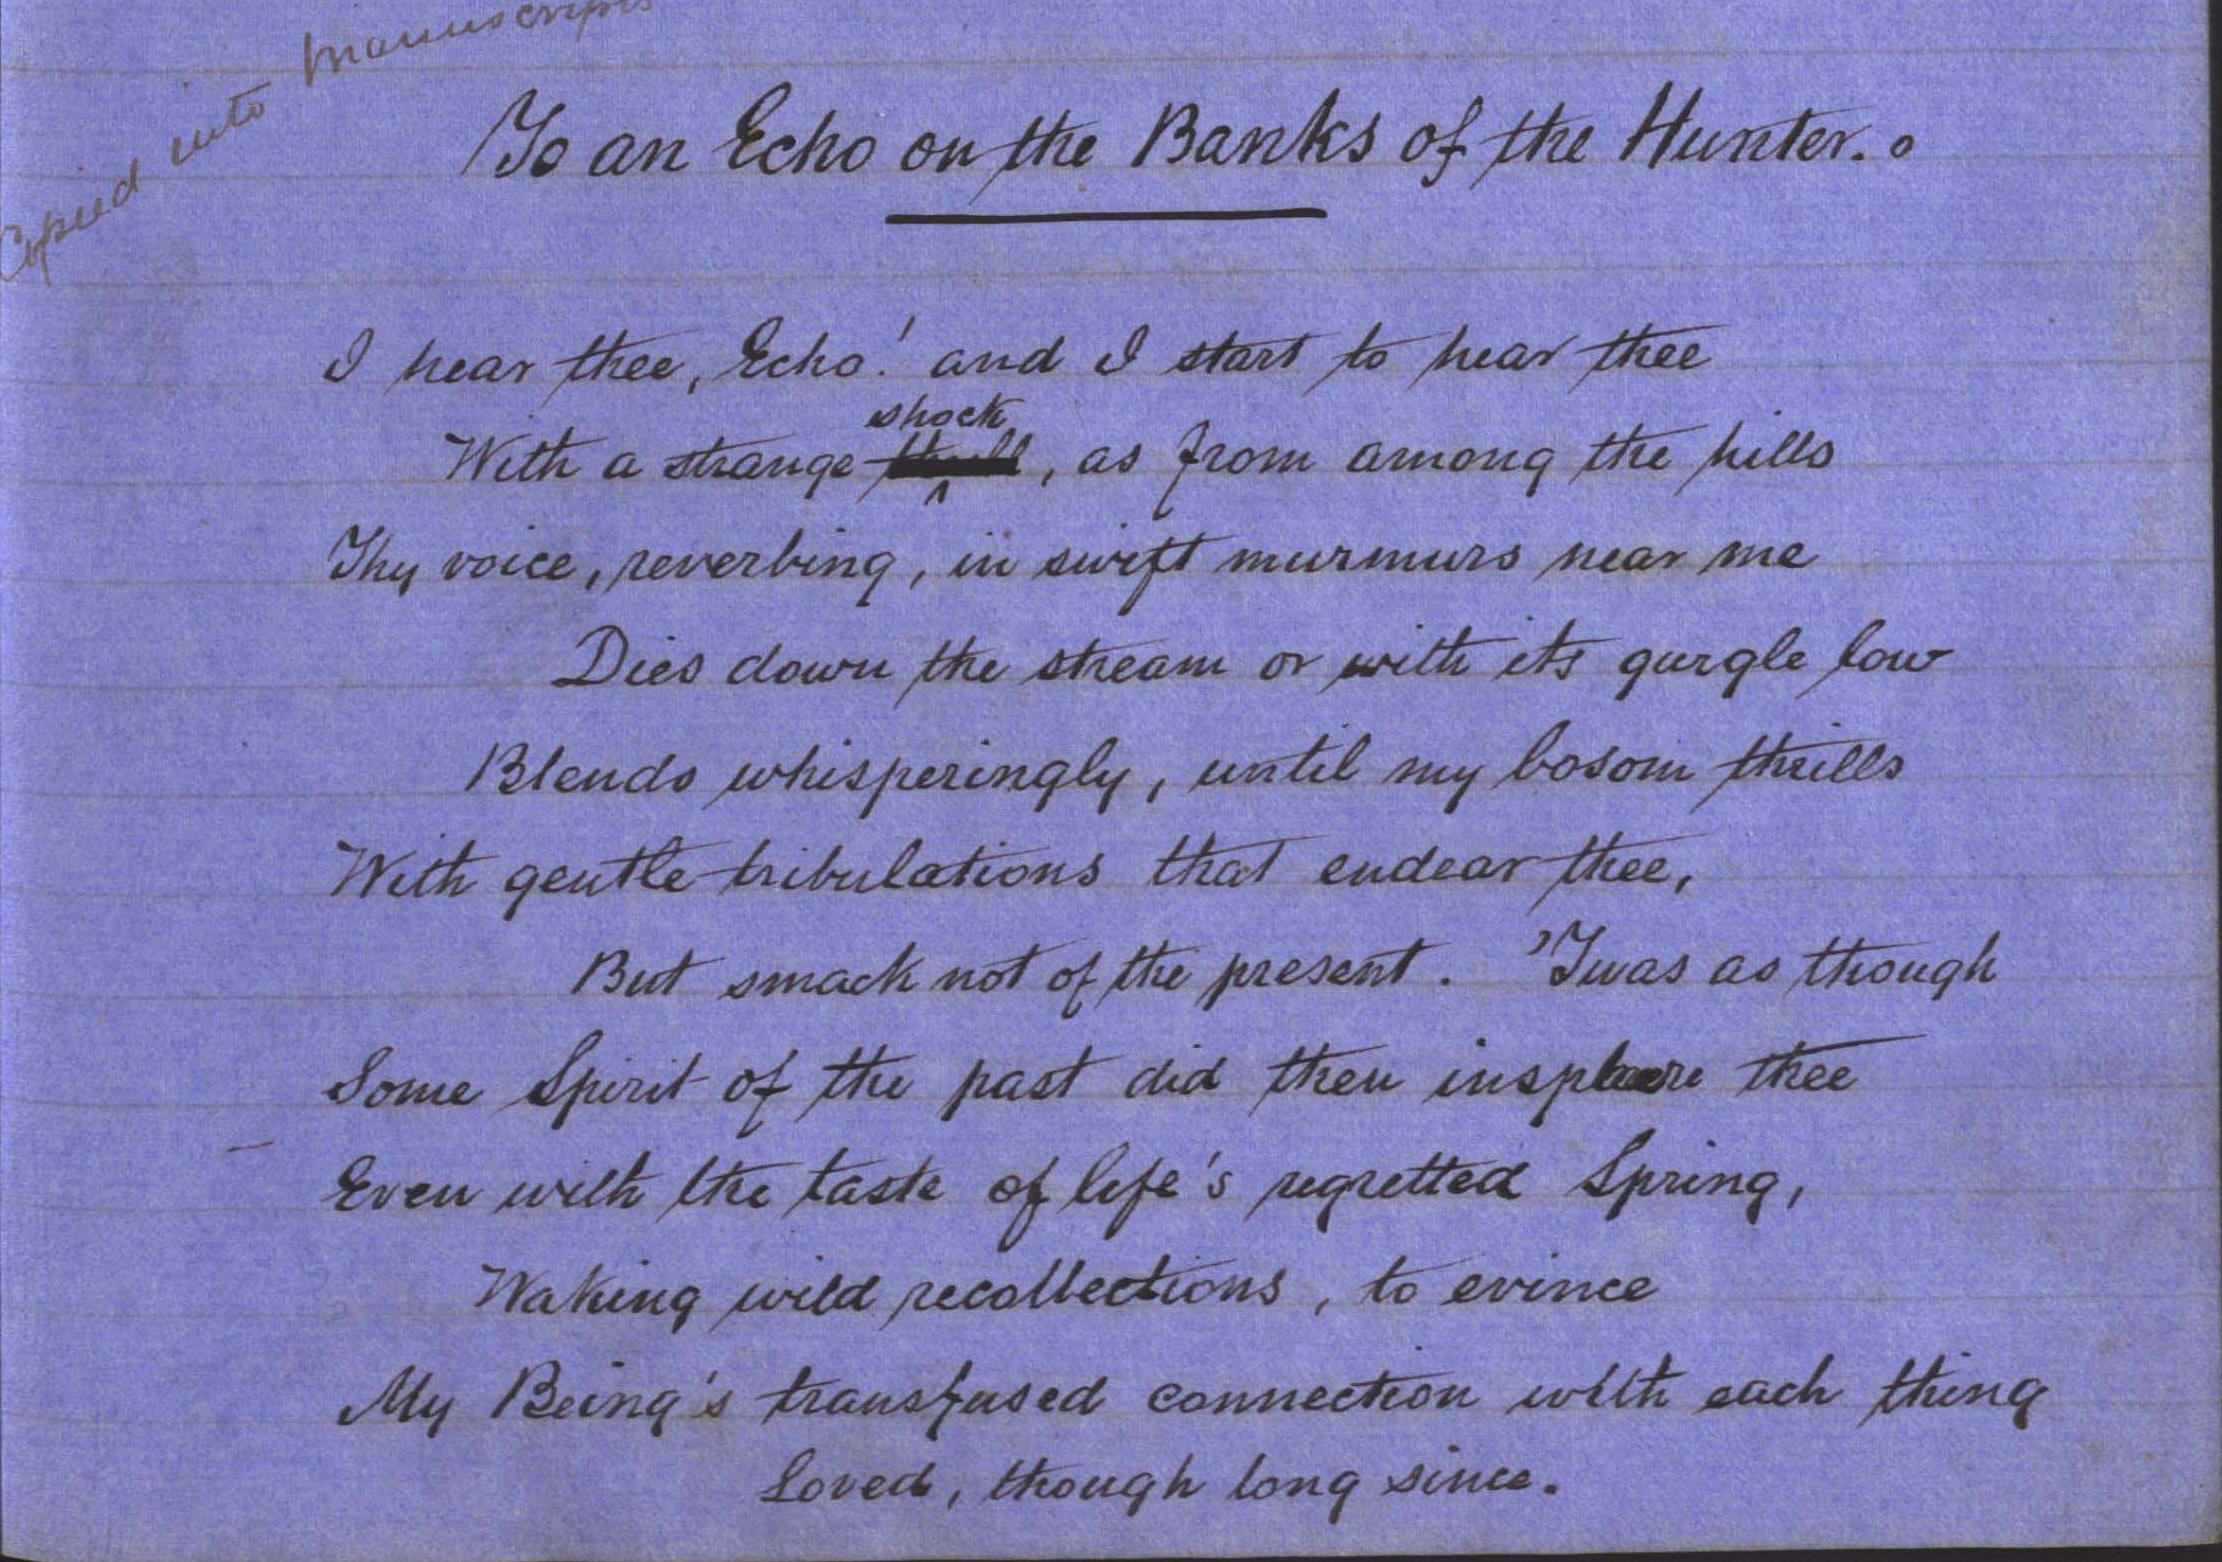 Copied into manuscripts
To an Echo on the Banks of the Hunter.
I hear thee, Echo! and I start to hear thee
shock
With a strange thrill, as from among the hills
Thy voice, reverbing, in swift murmurs near me
Dies down the stream or with its gurgle low
Blends whisperingly, until my bosom thrills
With gentle tribulations that endear thee,
But smack not of the present. 'Twas as though
Some Spirit of the past did then insphere thee
Even with the taste of life's regretted Spring,
Waking wild recollections, to evince
My Being's transfused connection with each thing
Loved, though long since.